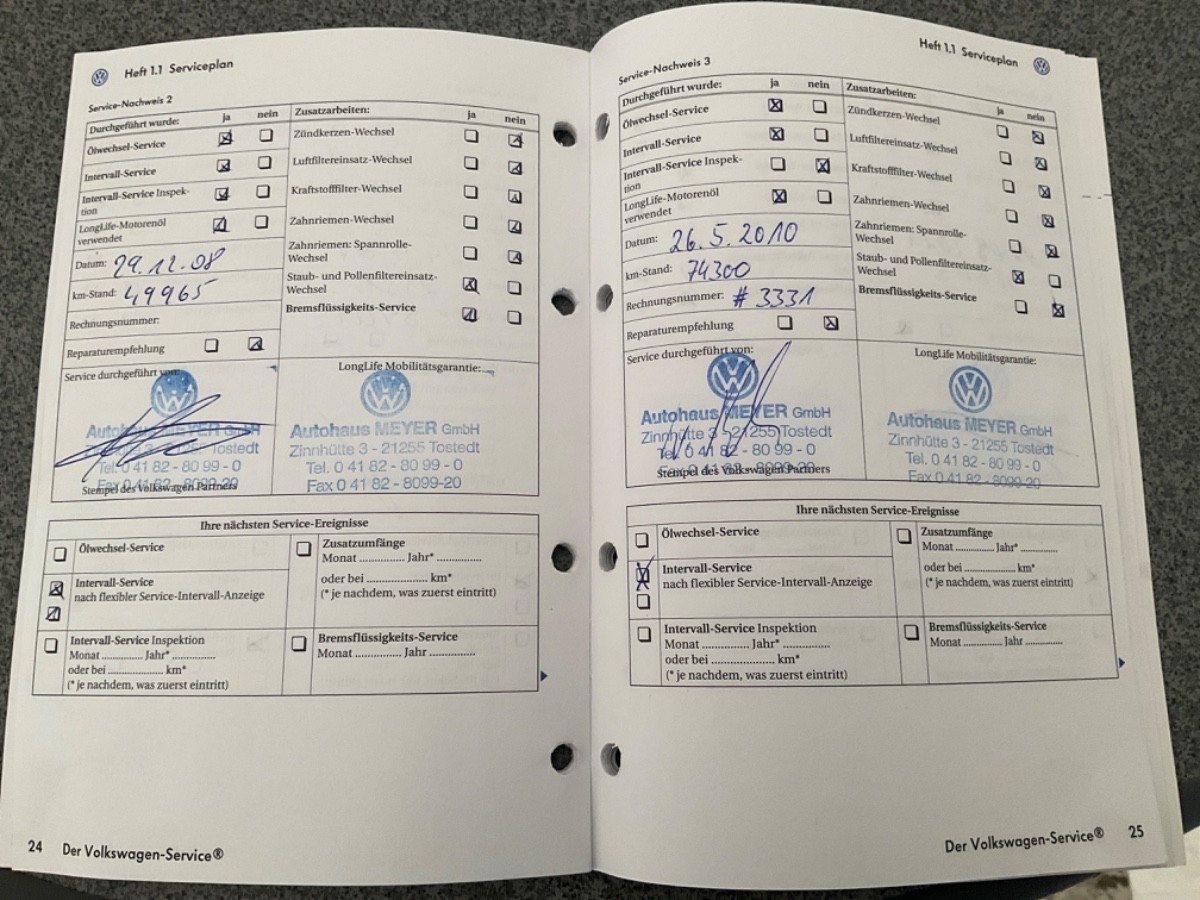 Heft 1.1 Serviceplan
Service-Nachweis 2
Durchgeführt wurde: ja nein
Ölwechsel-Service
Intervall-Service
Intervall-Service Inspek-
tion
LongLife-Motorenöl
verwendet
Datum: 29.12.08
km-Stand: 49965
Rechnungsnummer:
Reparaturempfehlung
Zusatzarbeiten: ja nein
Zündkerzen-Wechsel
Luftfiltereinsatz-Wechsel
Kraftstofffilter-Wechsel
Zahnriemen-Wechsel
Zahnriemen: Spannrolle-
Wechsel
Staub- und Pollenfiltereinsatz-
Wechsel
Bremsflüssigkeits-Service
Service durchgeführt von:
Autohaus MEYER GmbH
Zinnhütte 3 - 21255 Tostedt
Tel. 0 41 82 - 80 99 - 0
Fax 0 41 82 - 8099-20
Stempel des Volkswagen Partners
LongLife Mobilitätsgarantie:
Autohaus MEYER GmbH
Zinnhütte 3 - 21255 Tostedt
Tel. 0 41 82 - 80 99 - 0
Fax 0 41 82 - 8099-20
Ihre nächsten Service-Ereignisse
Ölwechsel-Service
Intervall-Service
nach flexibler Service-Intervall-Anzeige
Intervall-Service Inspektion
Monat .............. Jahr* ...............
oder bei ..................... km*
(* je nachdem, was zuerst eintritt)
Zusatzumfänge
Monat .............. Jahr* ...............
oder bei ..................... km*
(* je nachdem, was zuerst eintritt)
Bremsflüssigkeits-Service
Monat .............. Jahr ...............
24 Der Volkswagen-Service®
Heft 1.1 Serviceplan
Service-Nachweis 3
Durchgeführt wurde: ja nein
Ölwechsel-Service
Intervall-Service
Intervall-Service Inspek-
tion
LongLife-Motorenöl
verwendet
Datum: 26.5.2010
km-Stand: 74300
Rechnungsnummer: # 3331
Reparaturempfehlung
Zusatzarbeiten: ja nein
Zündkerzen-Wechsel
Luftfiltereinsatz-Wechsel
Kraftstofffilter-Wechsel
Zahnriemen-Wechsel
Zahnriemen: Spannrolle-
Wechsel
Staub- und Pollenfiltereinsatz-
Wechsel
Bremsflüssigkeits-Service
Service durchgeführt von:
Autohaus MEYER GmbH
Zinnhütte 3 - 21255 Tostedt
Tel. 0 41 82 - 80 99 - 0
Fax 0 41 82 - 8099-20
Stempel des Volkswagen Partners
LongLife Mobilitätsgarantie:
Autohaus MEYER GmbH
Zinnhütte 3 - 21255 Tostedt
Tel. 0 41 82 - 80 99 - 0
Fax 0 41 82 - 8099-20
Ihre nächsten Service-Ereignisse
Ölwechsel-Service
Intervall-Service
nach flexibler Service-Intervall-Anzeige
Intervall-Service Inspektion
Monat .............. Jahr* ...............
oder bei ..................... km*
(* je nachdem, was zuerst eintritt)
Zusatzumfänge
Monat .............. Jahr* ...............
oder bei ..................... km*
(* je nachdem, was zuerst eintritt)
Bremsflüssigkeits-Service
Monat .............. Jahr ...............
Der Volkswagen-Service® 25